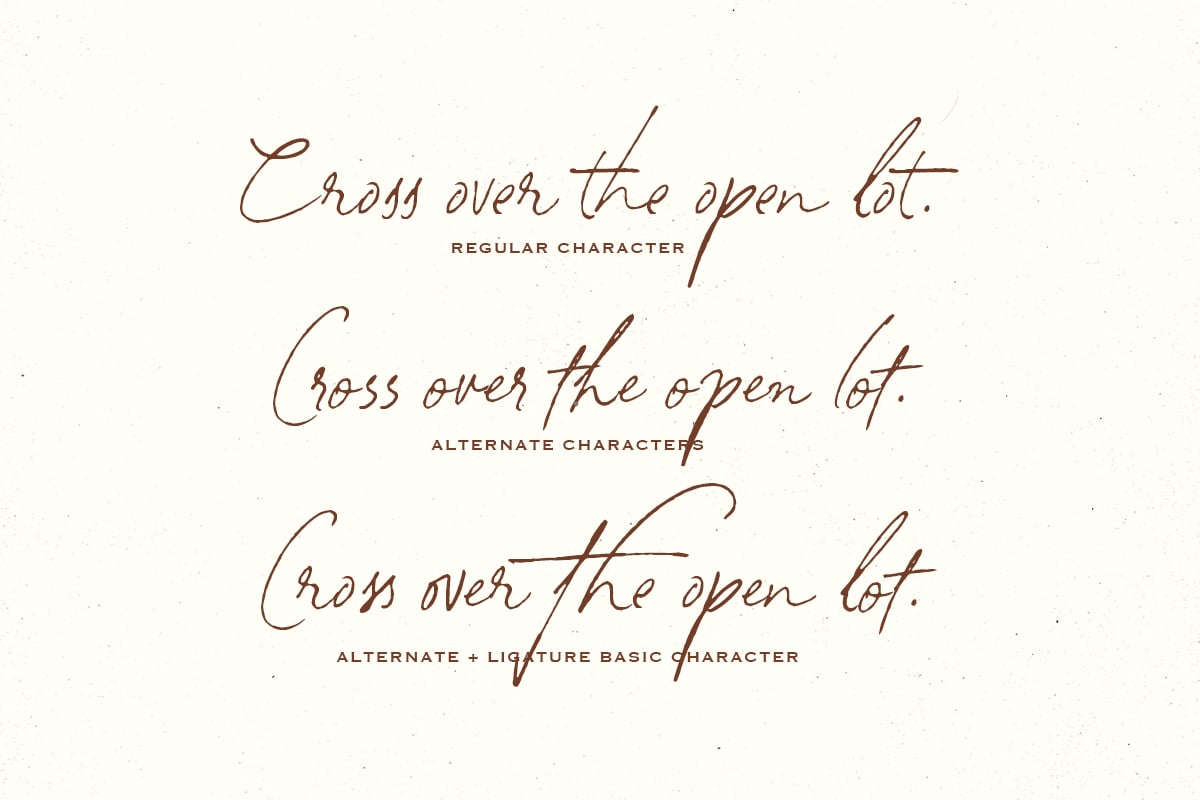 Cross over the open lot.
REGULAR CHARACTER
Cross over the open lot.
ALTERNATE CHARACTERS
Cross over the open lot.
ALTERNATE + LIGATURE BASIC CHARACTER